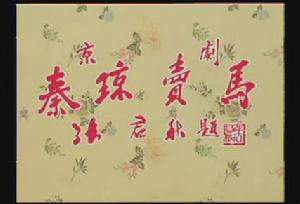 京劇
秦琼賣馬
張君秋題